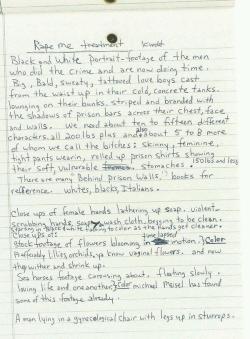 Rape me treatment Kurdt
Black and White portrait-footage of the men
who did the Crime and are now doing time.
Big, Bald, sweaty, tattooed love boys cast
from the waist up in their cold, concrete tanks.
lounging on their bunks. striped and branded with
the shadows of prison bars across their chest, face
and walls. we need about ten to fifteen different
characters. all 200 lbs plus and also about 5 to 8 more
of whom we call the bitches: skinny, feminine,
tight pants wearin, rolled up prison shirts showing
their soft, vulnerable stomaches, 150lbs and less
There are many "Behind Prison Walls," books for
refference. whites, blacks, Italians.
Close ups of female hands lathering up soap. violent
scrubbing hands, soapy wash cloth. begging to be clean.
starting in Black & white fading to color as the hands get cleaner.
Close ups of:
Stock footage of flowers blooming in time lapsed motion. } Color
Prefferably lilies, orchids, ya know vaginal flowers. and now
they wither and shrink up.
Sea horses footage carousing about. floating slowly.
loving life and one another } Color michael Meisel has found
some of this footage already.
A man lying in a gynecological chair with legs up in sturrups.